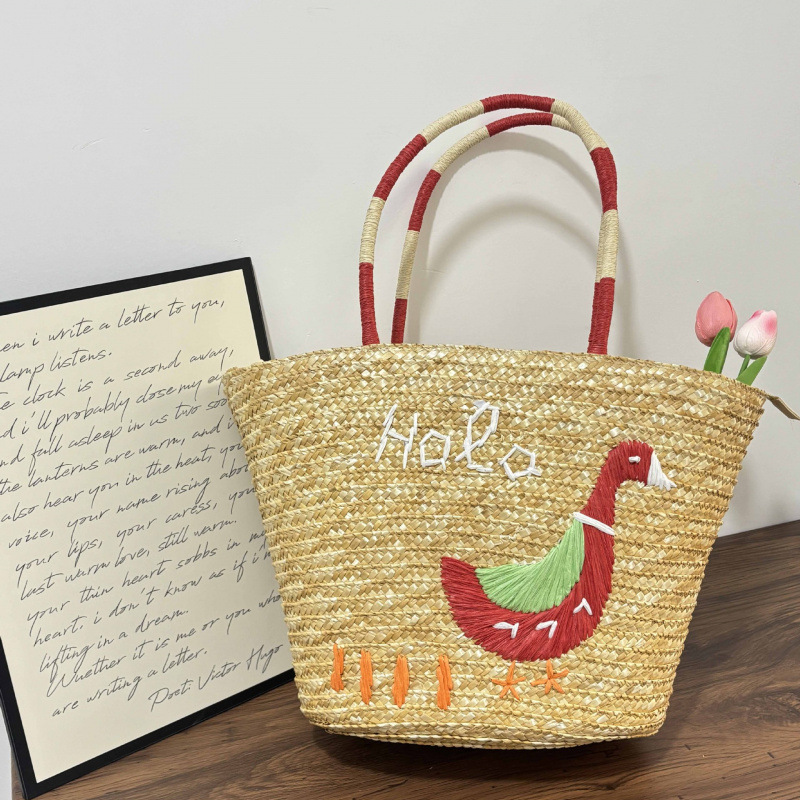 en i write a letter to you,
lamp listens.
e clock is a second away,
d i'll probably close my ey
nd fall asleep in us two soo
the lanterns are warm, and i
also hear you in the heat, yo
voice, your name rising abo
your lips, your caress, you
last warm love, still warm.
your thin heart sobbs in me
heart, i don't know as if i'm
lifting in a dream.
Wuether it is me or you who
are writing a letter.
Poet: Victor Hugo
Halo